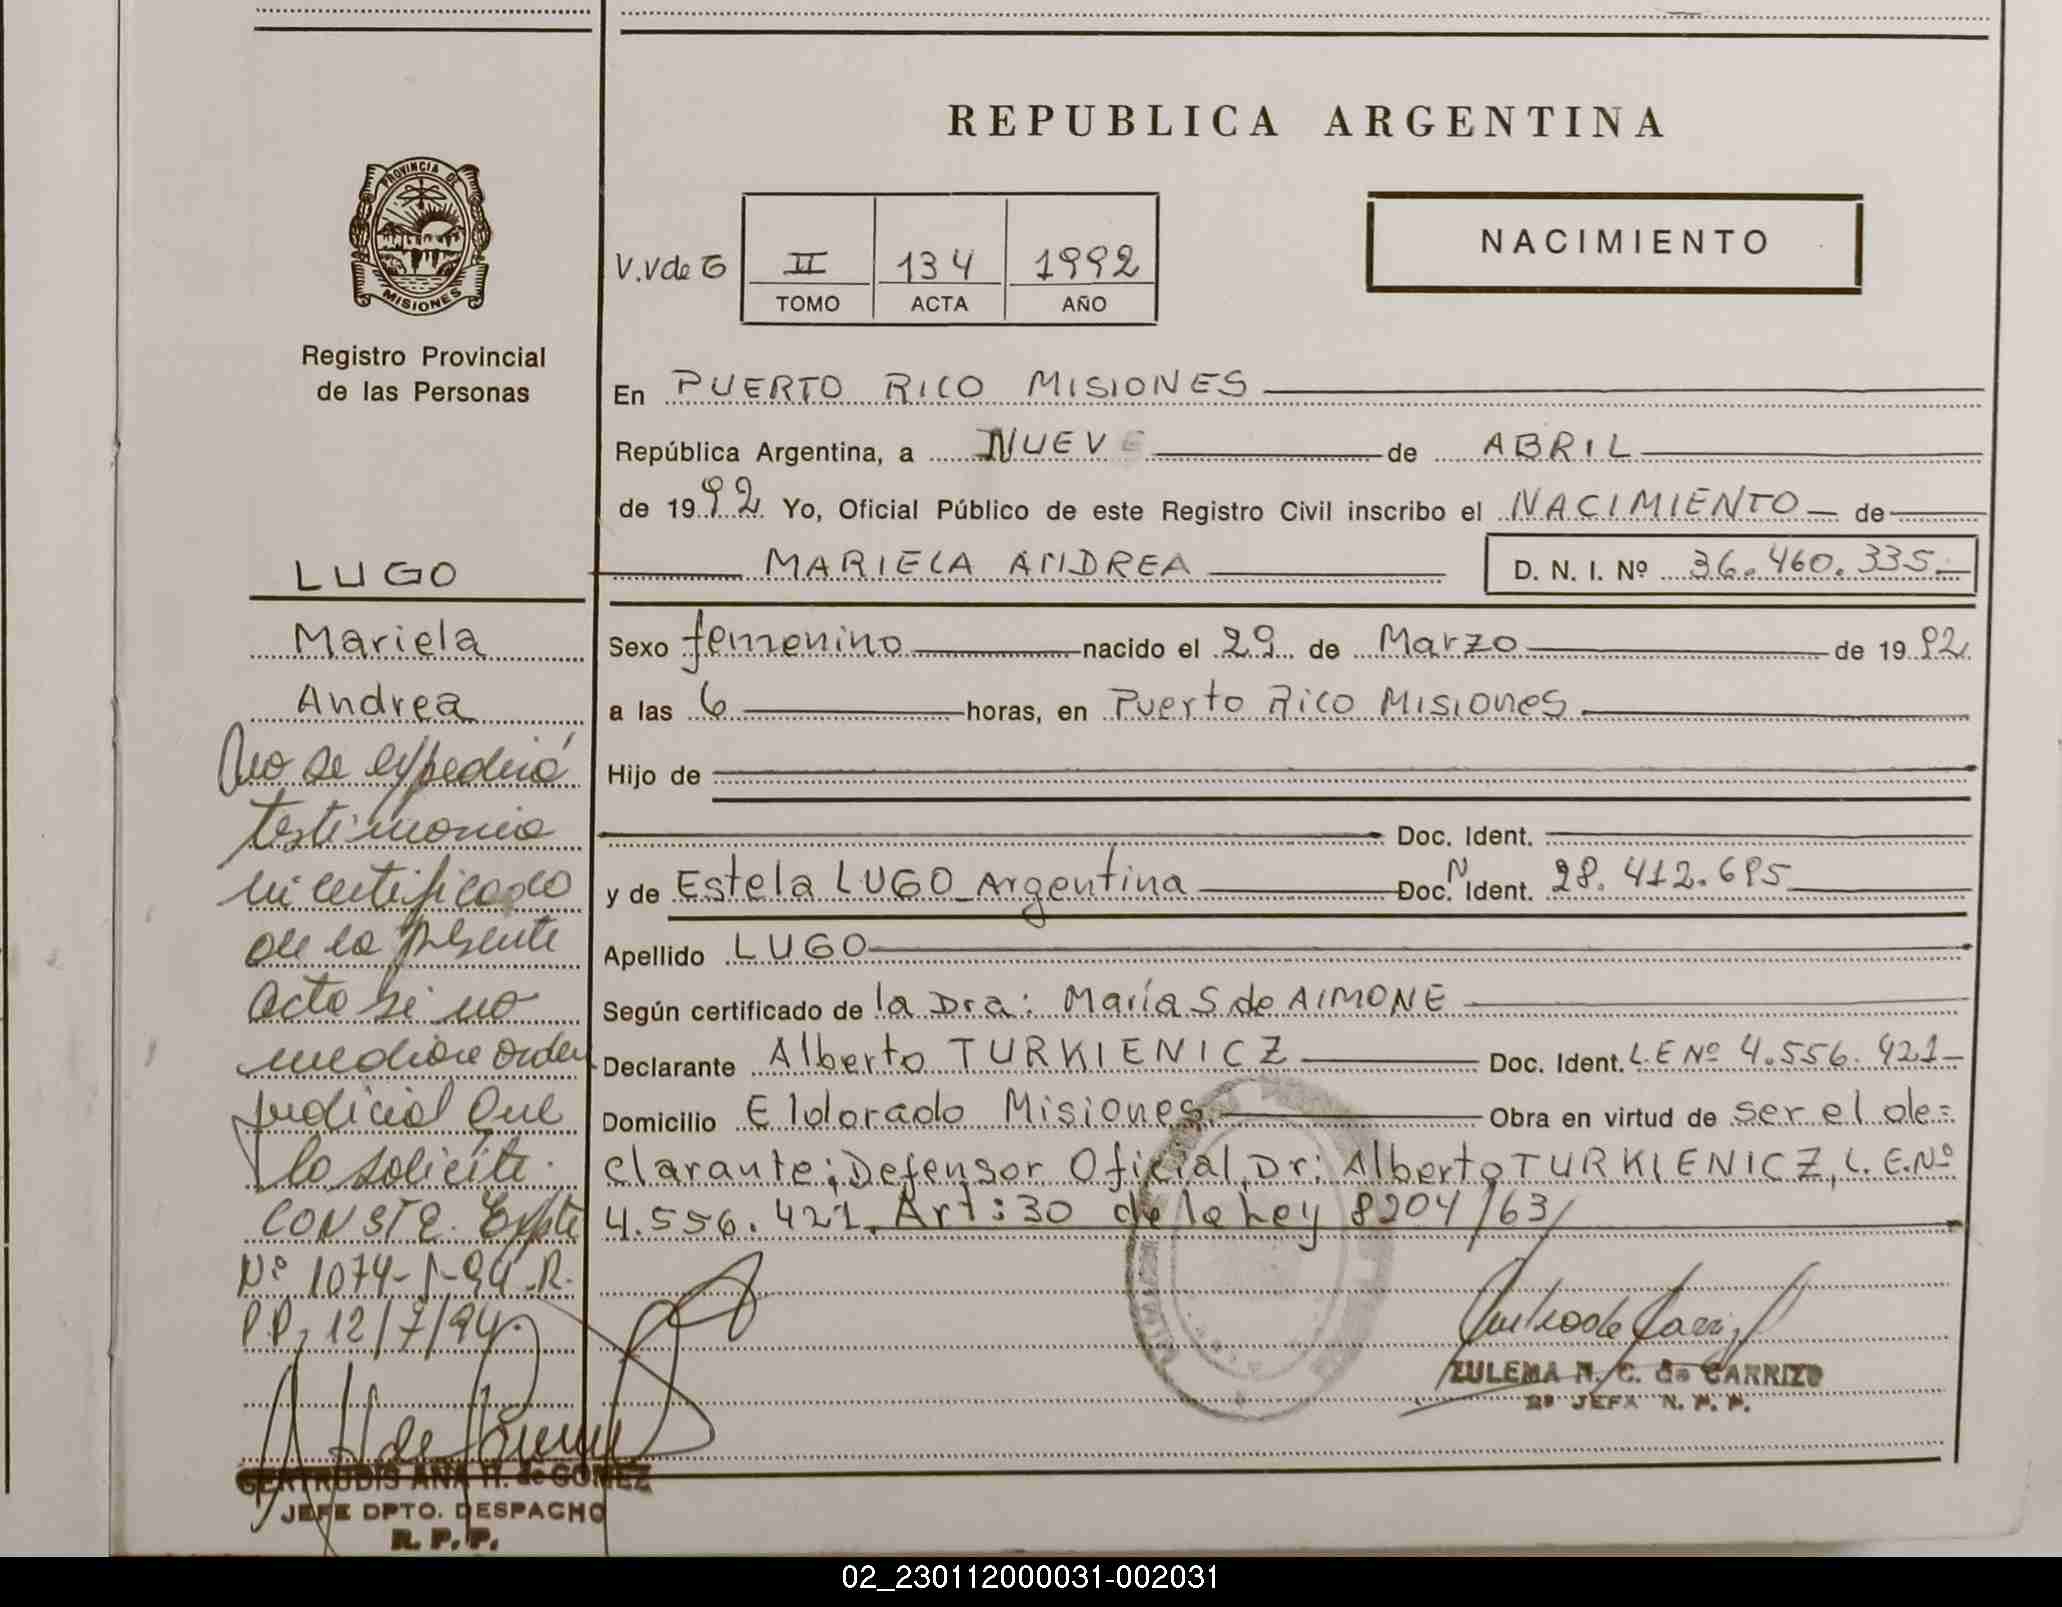 REPUBLICA ARGENTINA
PROVINCIA DE
MISIONES
Registro Provincial
de las Personas
V.V de G
II 134 1992
TOMO ACTA AÑO
NACIMIENTO
En PUERTO RICO MISIONES
República Argentina, a NUEVE de ABRIL
de 1992 Yo, Oficial Público de este Registro Civil inscribo el NACIMIENTO de
MARIELA ANDREA D. N. I. Nº 36.460.335
Sexo femenino nacido el 29 de Marzo de 1992
a las 6 horas, en Puerto Rico Misiones
Hijo de
Doc. Ident.
y de Estela LUGO Argentina Doc. N Ident. 28.412.695
Apellido LUGO
Según certificado de la Dra: María S de AIMONE
Declarante Alberto TURKIENICZ Doc. Ident. L.E Nº 4.556.421
Domicilio Eldorado Misiones Obra en virtud de ser el de=
clarante; Defensor Oficial, Dr: Alberto TURKIENICZ, L.E.Nº
4.556.421. Art: 30 de la Ley 8204/63/
ZULEMA N. C. de CARRIZO
2ª JEFA N. P. P.
LUGO
Mariela
Andrea
No se expedirá
testimonio
ni certificado
de la presente
acta si no
mediare orden
judicial que
lo solicite.
CONSTE. Expte
Nº 1074- -94-R.
P.P, 12/7/94.
GERTRUDIS ANA H. de GOMEZ
JEFE DPTO. DESPACHO
R. P. P.
02_230112000031-002031